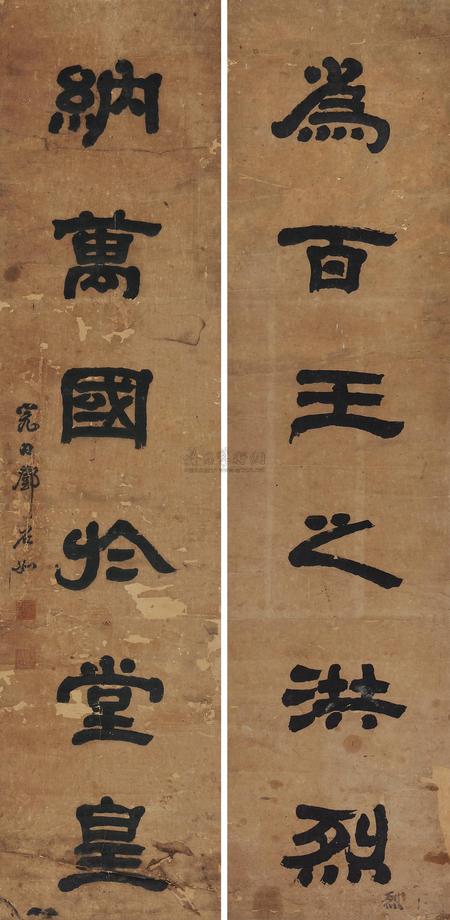 為百王之洪烈
烈
納萬國於堂皇
完白鄧石如